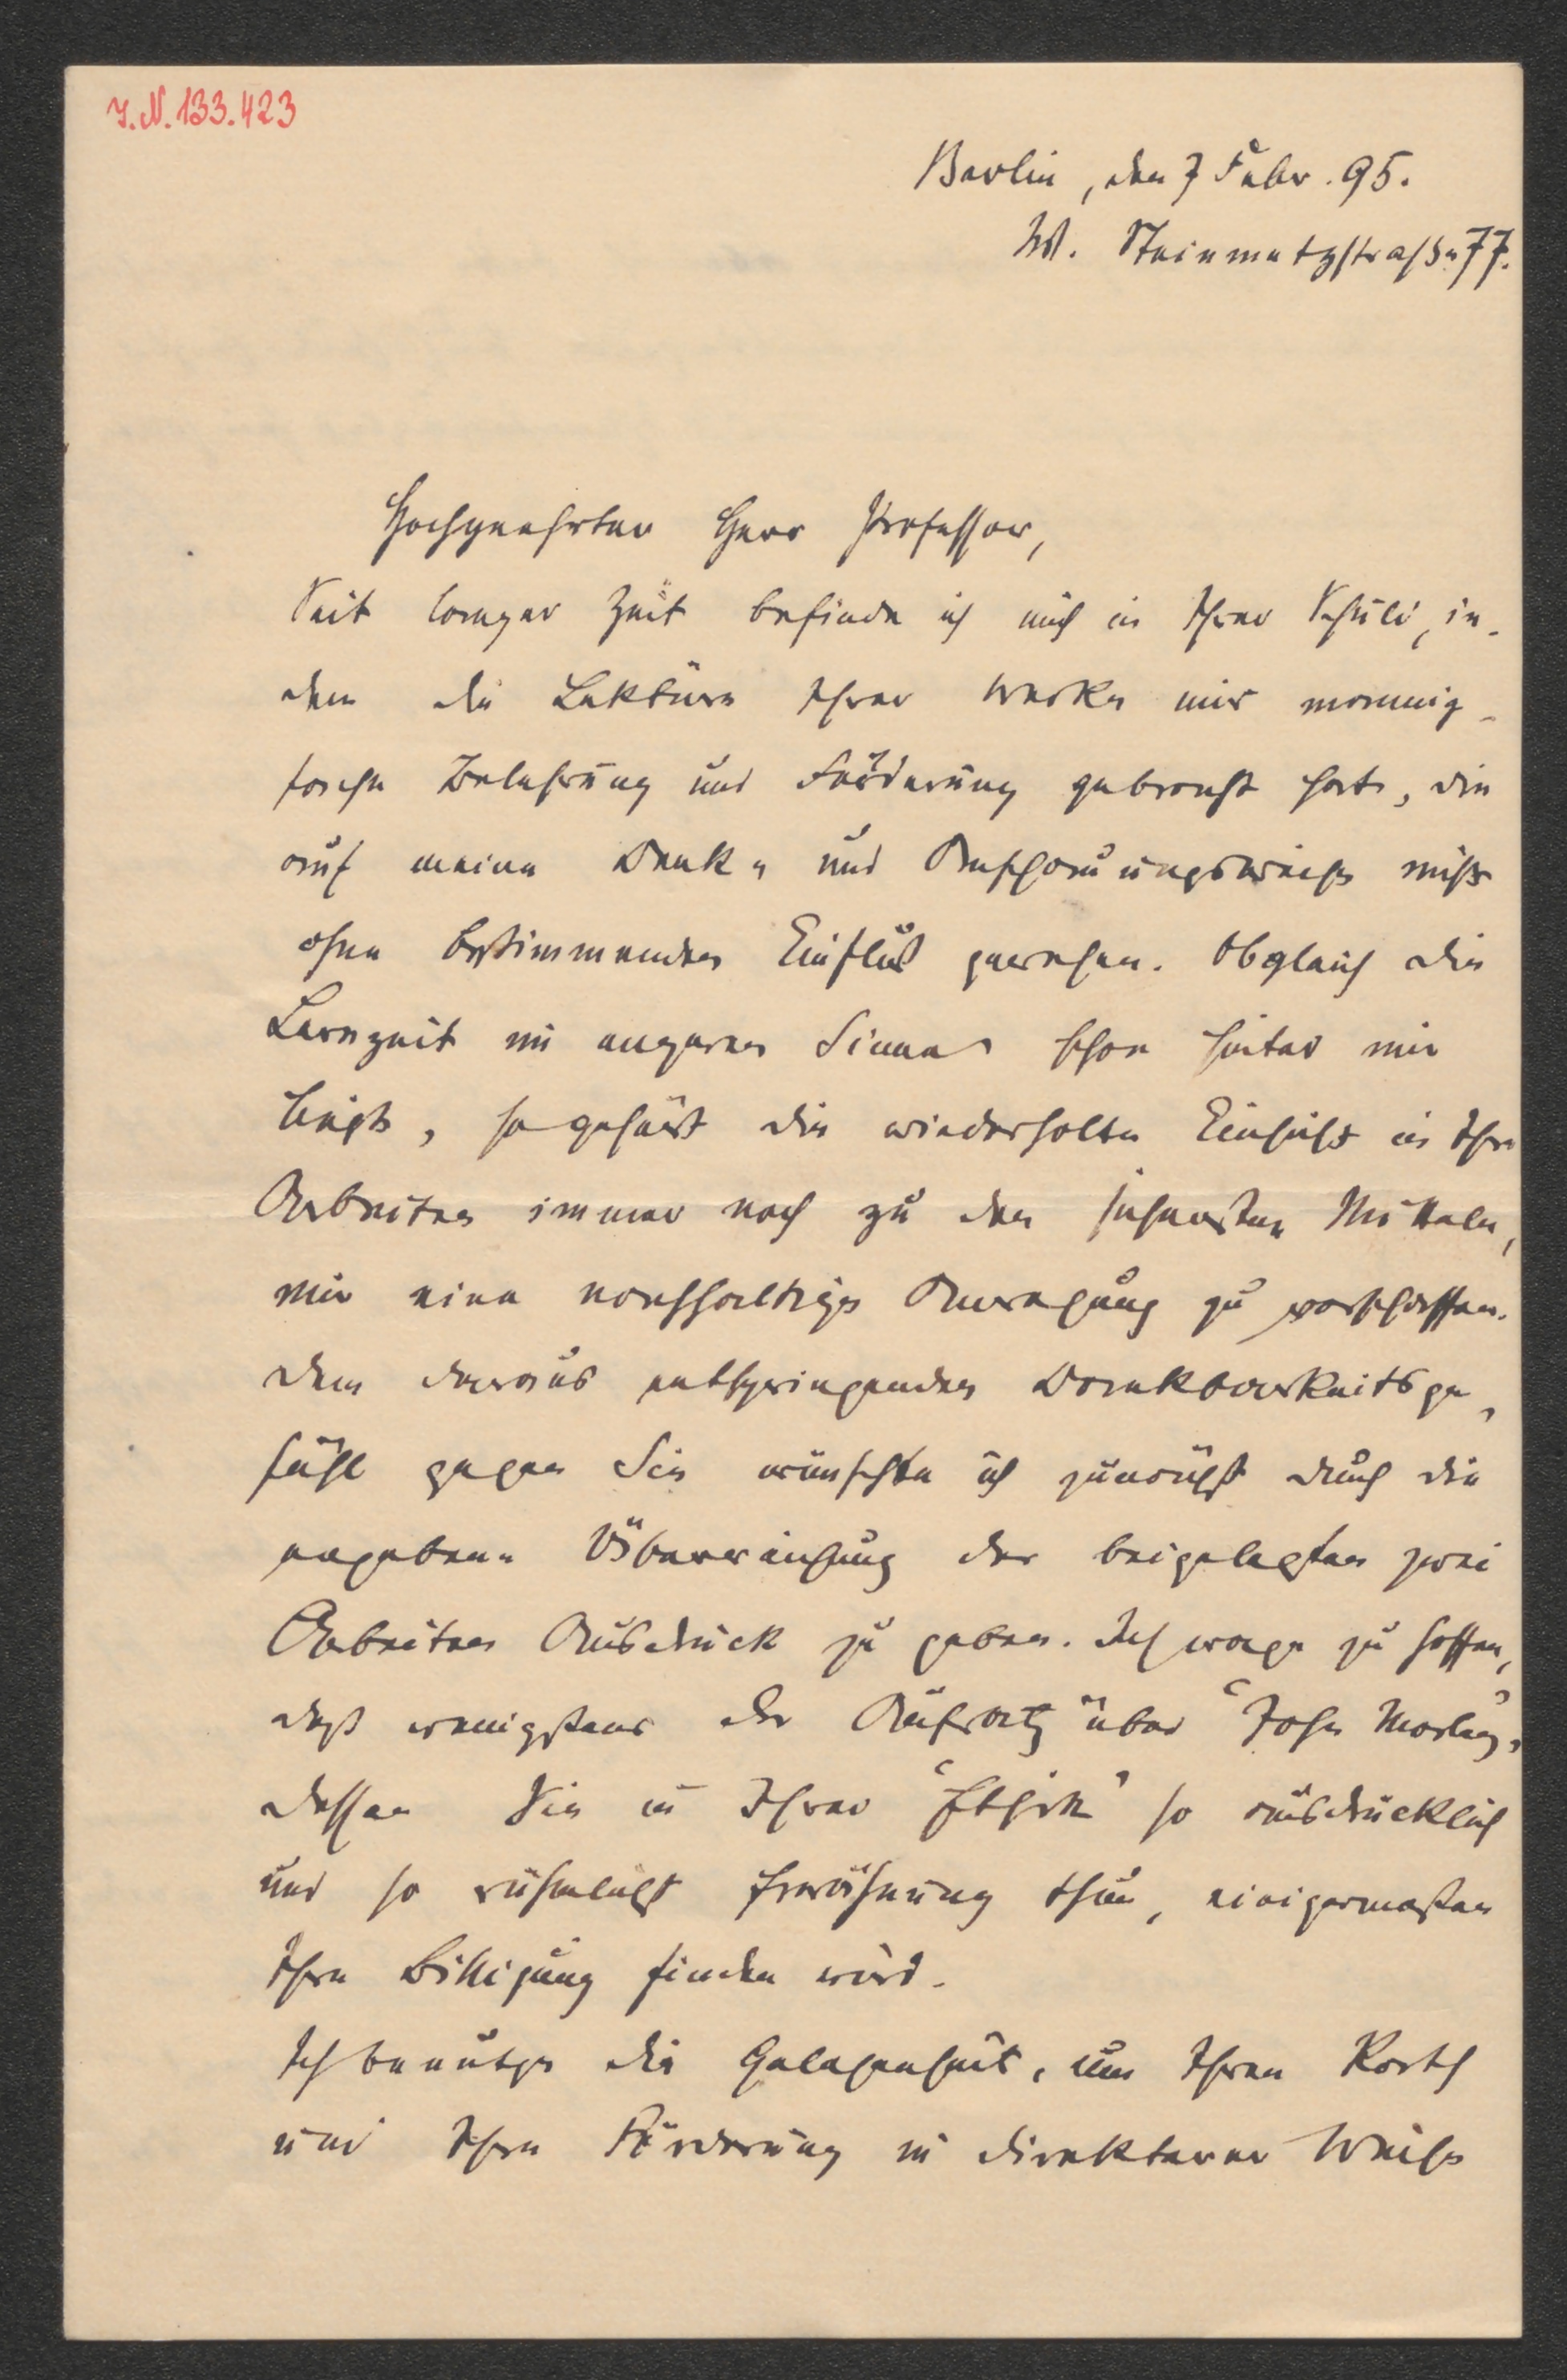 I.N. 133.423
Berlin, den 7 Febr. 95.
W. Steinmetzstraße 77.
Hochgeehrter Herr Professor,
Seit langer Zeit befinde ich mich in Ihrer Schuld, in-
dem die Lektüre Ihrer Werke mir mannig-
fache Belehrung und Förderung gebracht hat, die
auf meine Denk- und Anschauungsweise nicht
ohne bestimmenden Einfluß gewesen. Obgleich die
Lernzeit im engeren Sinne schon hinter mir
liegt, so gehört die wiederholte Einsicht in Ihre
Arbeiten immer noch zu den sichersten Mitteln,
mir eine nachhaltige Anregung zu verschaffen.
Dem daraus entspringenden Dankbarkeitsge-
fühl gegen Sie wünschte ich zunächst durch die
ergebene Überreichung der beigelegten zwei
Arbeiten Ausdruck zu geben. Ich wage zu hoffen,
daß wenigstens der Aufsatz über "John Morley",
dessen Sie in Ihrer "Ethik" so ausdrücklich
und so rühmlichst Erwähnung thun, einigermaßen
Ihre Billigung finden wird.
Ich benütze die Gelegenheit, um Ihren Rath
und Ihre Förderung in direkterer Weise